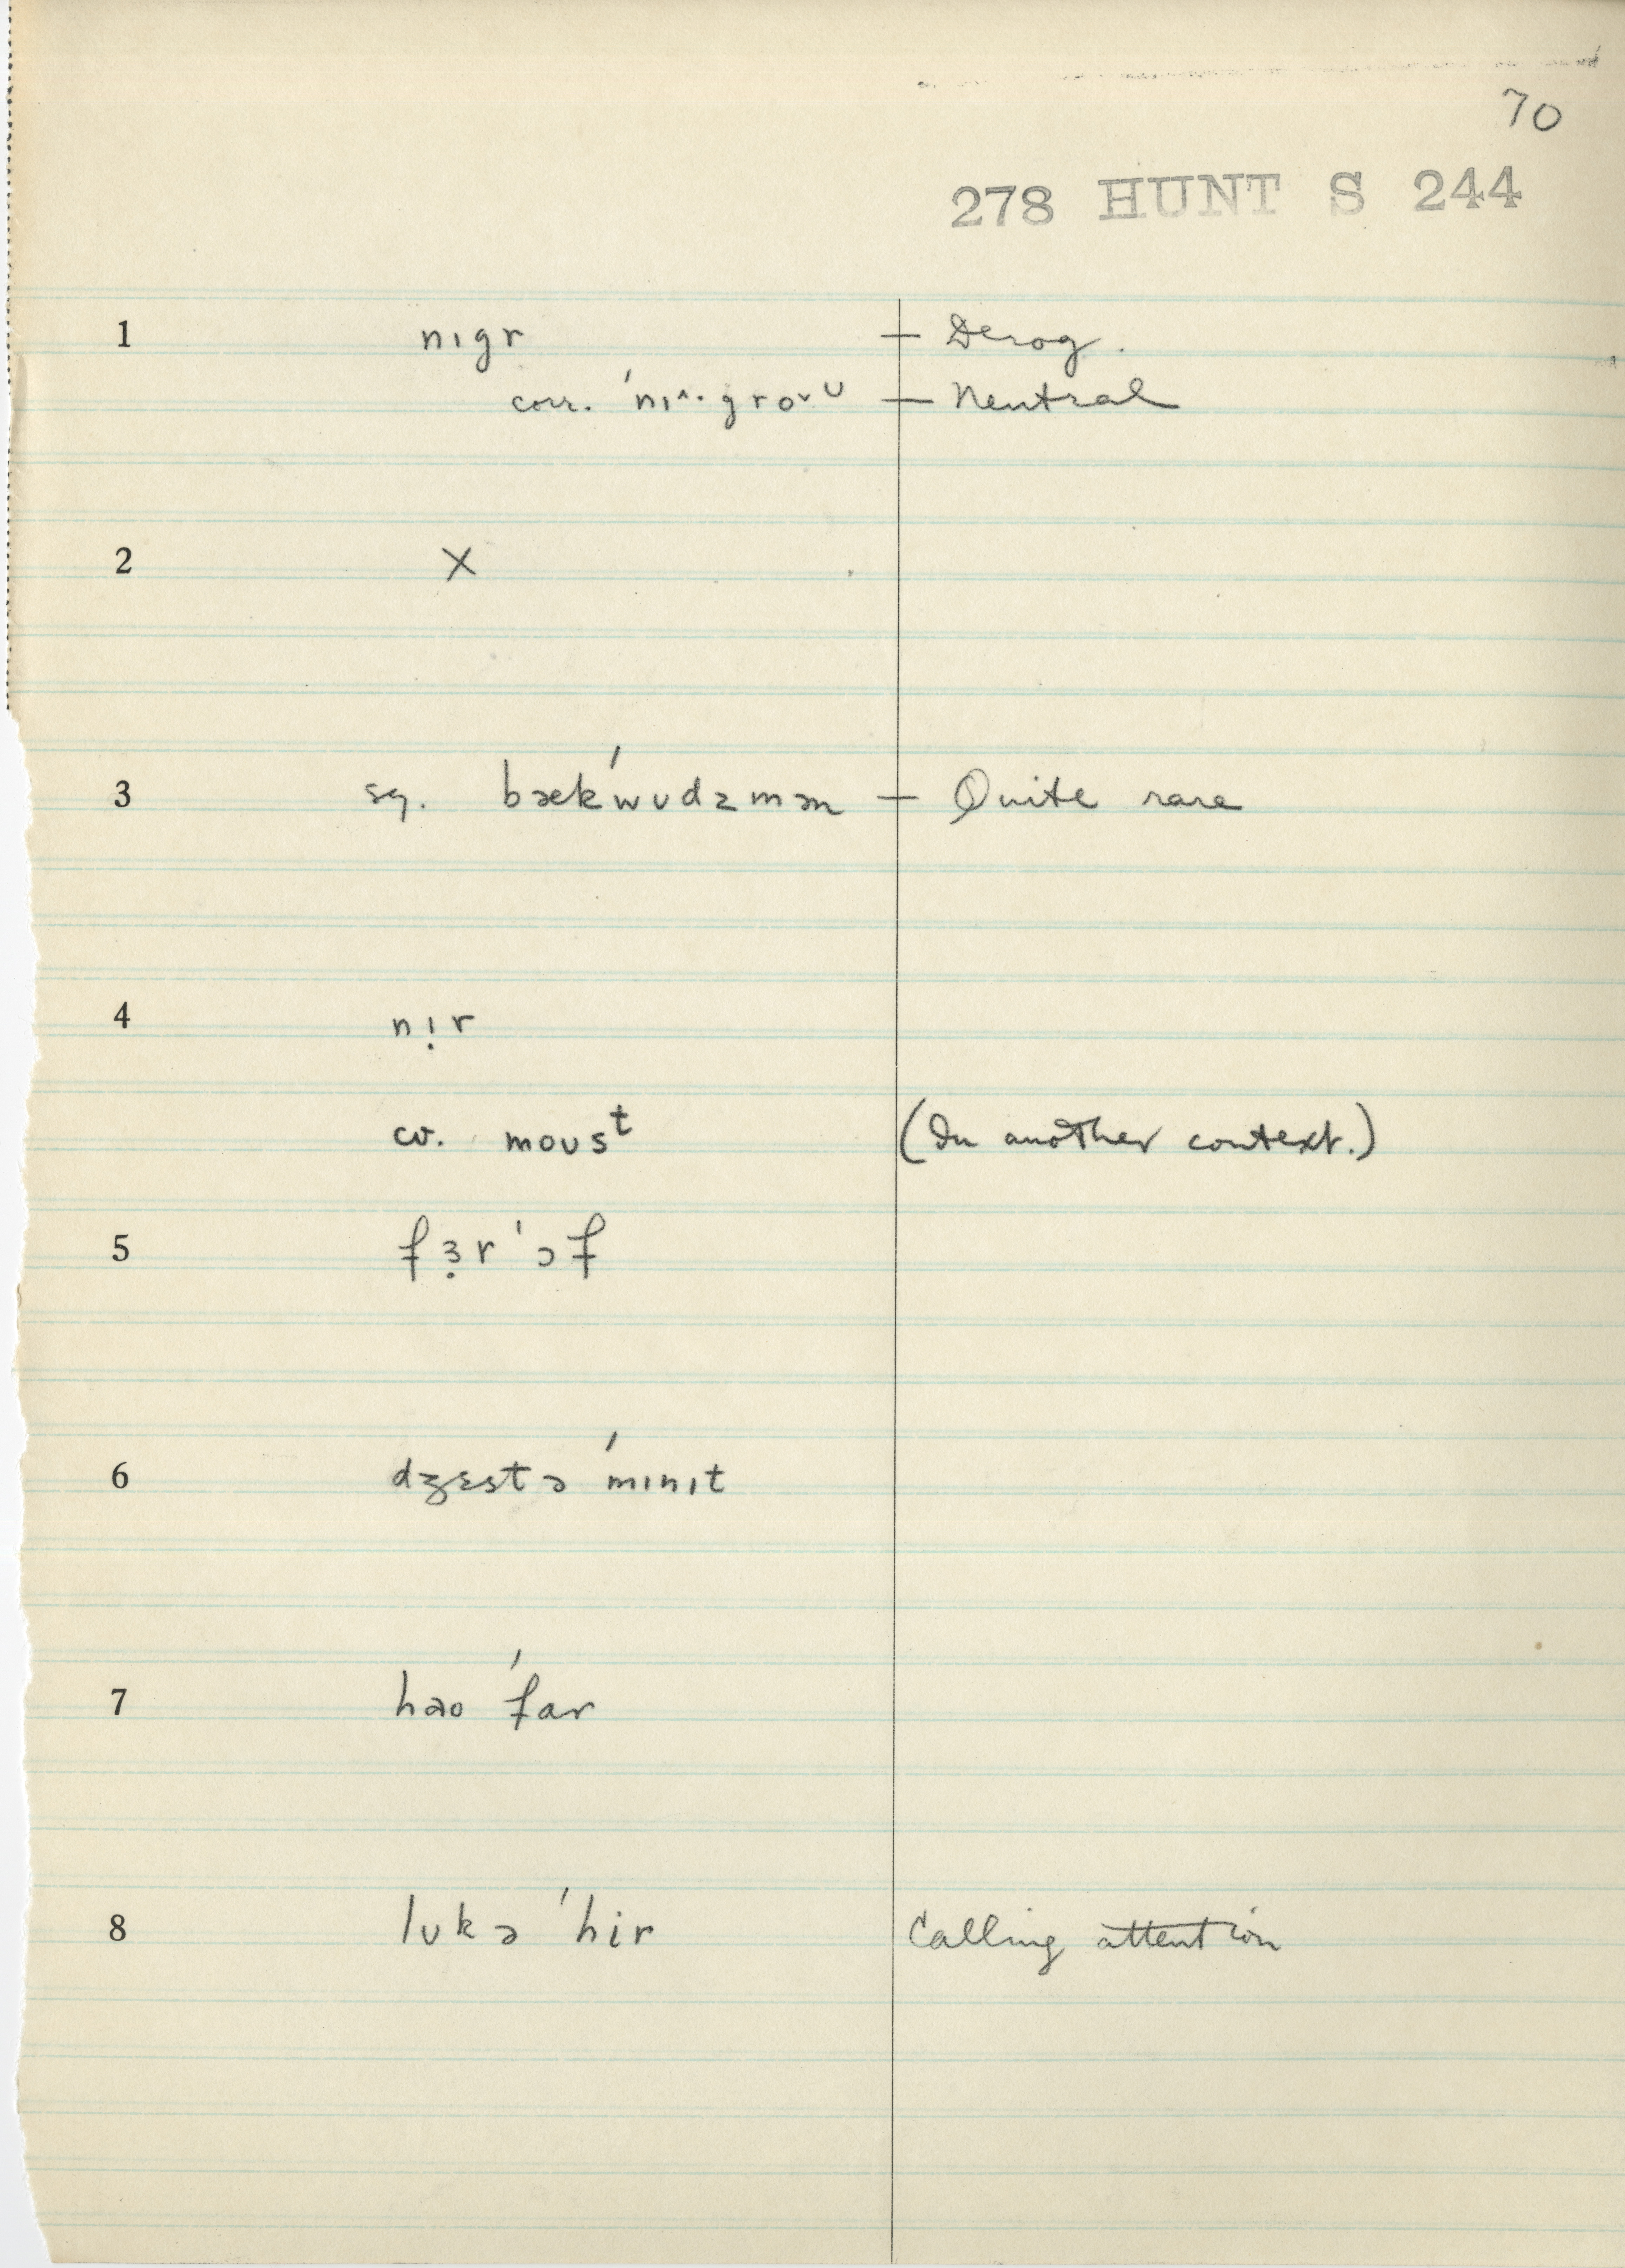 70
278 HUNT S 244
1 nɪgr — Derog.
corr. ˈnɪ^·groᵛᴜ — Neutral
2 X
3 sg. bækˈwʊdzmən — Quite rare
4 nɪ̣r
cv. moʊsᵗ (In another context.)
5 fɜ̣rˈɔf
6 dʒɛstə ˈmɪnɪt
7 hao ˈfar
8 lʊkə ˈhir Calling attention